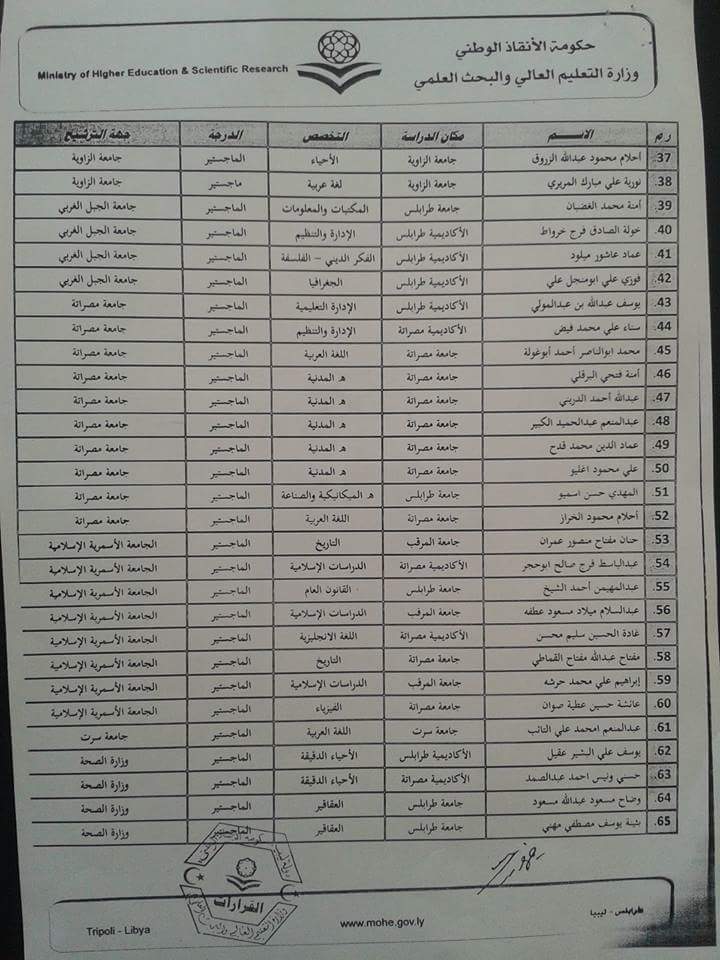 حكومة الأنقاذ الوطني
وزارة التعليم العالي والبحث العلمي
Ministry of Higher Education & Scientific Research
ر م الاســم مكان الدراسة التخصص الدرجة جهة الترشيح
37. أحلام محمود عبدالله الزروق جامعة الزاوية الأحياء الماجستير جامعة الزاوية
38. نورية علي مبارك المريري جامعة الزاوية لغة عربية ماجستير جامعة الزاوية
39. أمنة محمد الغضبان جامعة طرابلس المكتبات والمعلومات الماجستير جامعة الجبل الغربي
40. خولة الصادق فرج خرواط الأكاديمية طرابلس الإدارة والتنظيم الماجستير جامعة الجبل الغربي
41. عماد عاشور ميلود الأكاديمية طرابلس الفكر الديني – الفلسفة الماجستير جامعة الجبل الغربي
42. فوزي علي ابومنجل علي الأكاديمية طرابلس الجغرافيا الماجستير جامعة الجبل الغربي
43. يوسف عبدالله بن عبدالمولي الأكاديمية طرابلس الإدارة التعليمية الماجستير جامعة مصراتة
44. سناء علي محمد فيض الأكاديمية مصراتة الإدارة والتنظيم الماجستير جامعة مصراتة
45. محمد ابوالناصر أحمد أبوغولة جامعة مصراتة اللغة العربية الماجستير جامعة مصراتة
46. أمنة فتحي البرقلي جامعة مصراتة هـ المدنية الماجستير جامعة مصراتة
47. عبدالله أحمد الدريني جامعة مصراتة هـ المدنية الماجستير جامعة مصراتة
48. عبدالمنعم عبدالحميد الكبير جامعة مصراتة هـ المدنية الماجستير جامعة مصراتة
49. عماد الدين محمد قدح جامعة مصراتة هـ المدنية الماجستير جامعة مصراتة
50. علي محمود اغليو جامعة مصراتة هـ المدنية الماجستير جامعة مصراتة
51. المهدي حسن اسميو جامعة طرابلس هـ الميكانيكية والصناعة الماجستير جامعة مصراتة
52. أحلام محمود الخراز جامعة مصراتة اللغة العربية الماجستير جامعة مصراتة
53. حنان مفتاح منصور عمران جامعة المرقب التاريخ الماجستير الجامعة الأسمرية الإسلامية
54. عبدالباسط فرج صالح ابوحجر الأكاديمية مصراتة الدراسات الإسلامية الماجستير الجامعة الأسمرية الإسلامية
55. عبدالمهيمن أحمد الشيخ جامعة طرابلس القانون العام الماجستير الجامعة الأسمرية الإسلامية
56. عبدالسلام ميلاد مسعود عطفه جامعة المرقب الدراسات الإسلامية الماجستير الجامعة الأسمرية الإسلامية
57. غادة الحسين سليم محسن الأكاديمية مصراتة اللغة الانجليزية الماجستير الجامعة الأسمرية الإسلامية
58. مفتاح عبدالله مفتاح القماطي جامعة مصراتة التاريخ الماجستير الجامعة الأسمرية الإسلامية
59. إبراهيم علي محمد حرشه جامعة المرقب الدراسات الإسلامية الماجستير الجامعة الأسمرية الإسلامية
60. عائشة حسين عطية صوان جامعة مصراتة الفيزياء الماجستير الجامعة الأسمرية الإسلامية
61. عبدالمنعم امحمد علي التائب جامعة سرت اللغة العربية الماجستير جامعة سرت
62. يوسف علي البشير عقيل الأكاديمية طرابلس الأحياء الدقيقة الماجستير وزارة الصحة
63. حسني ونيس احمد عبدالصمد الأكاديمية مصراتة الأحياء الدقيقة الماجستير وزارة الصحة
64. وضاح مسعود عبدالله مسعود جامعة طرابلس العقاقير الماجستير وزارة الصحة
65. بثينة يوسف مصطفي مهني جامعة طرابلس العقاقير الماجستير وزارة الصحة
القرارات
طرابلس - ليبيا
www.mohe.gov.ly
Tripoli - Libya